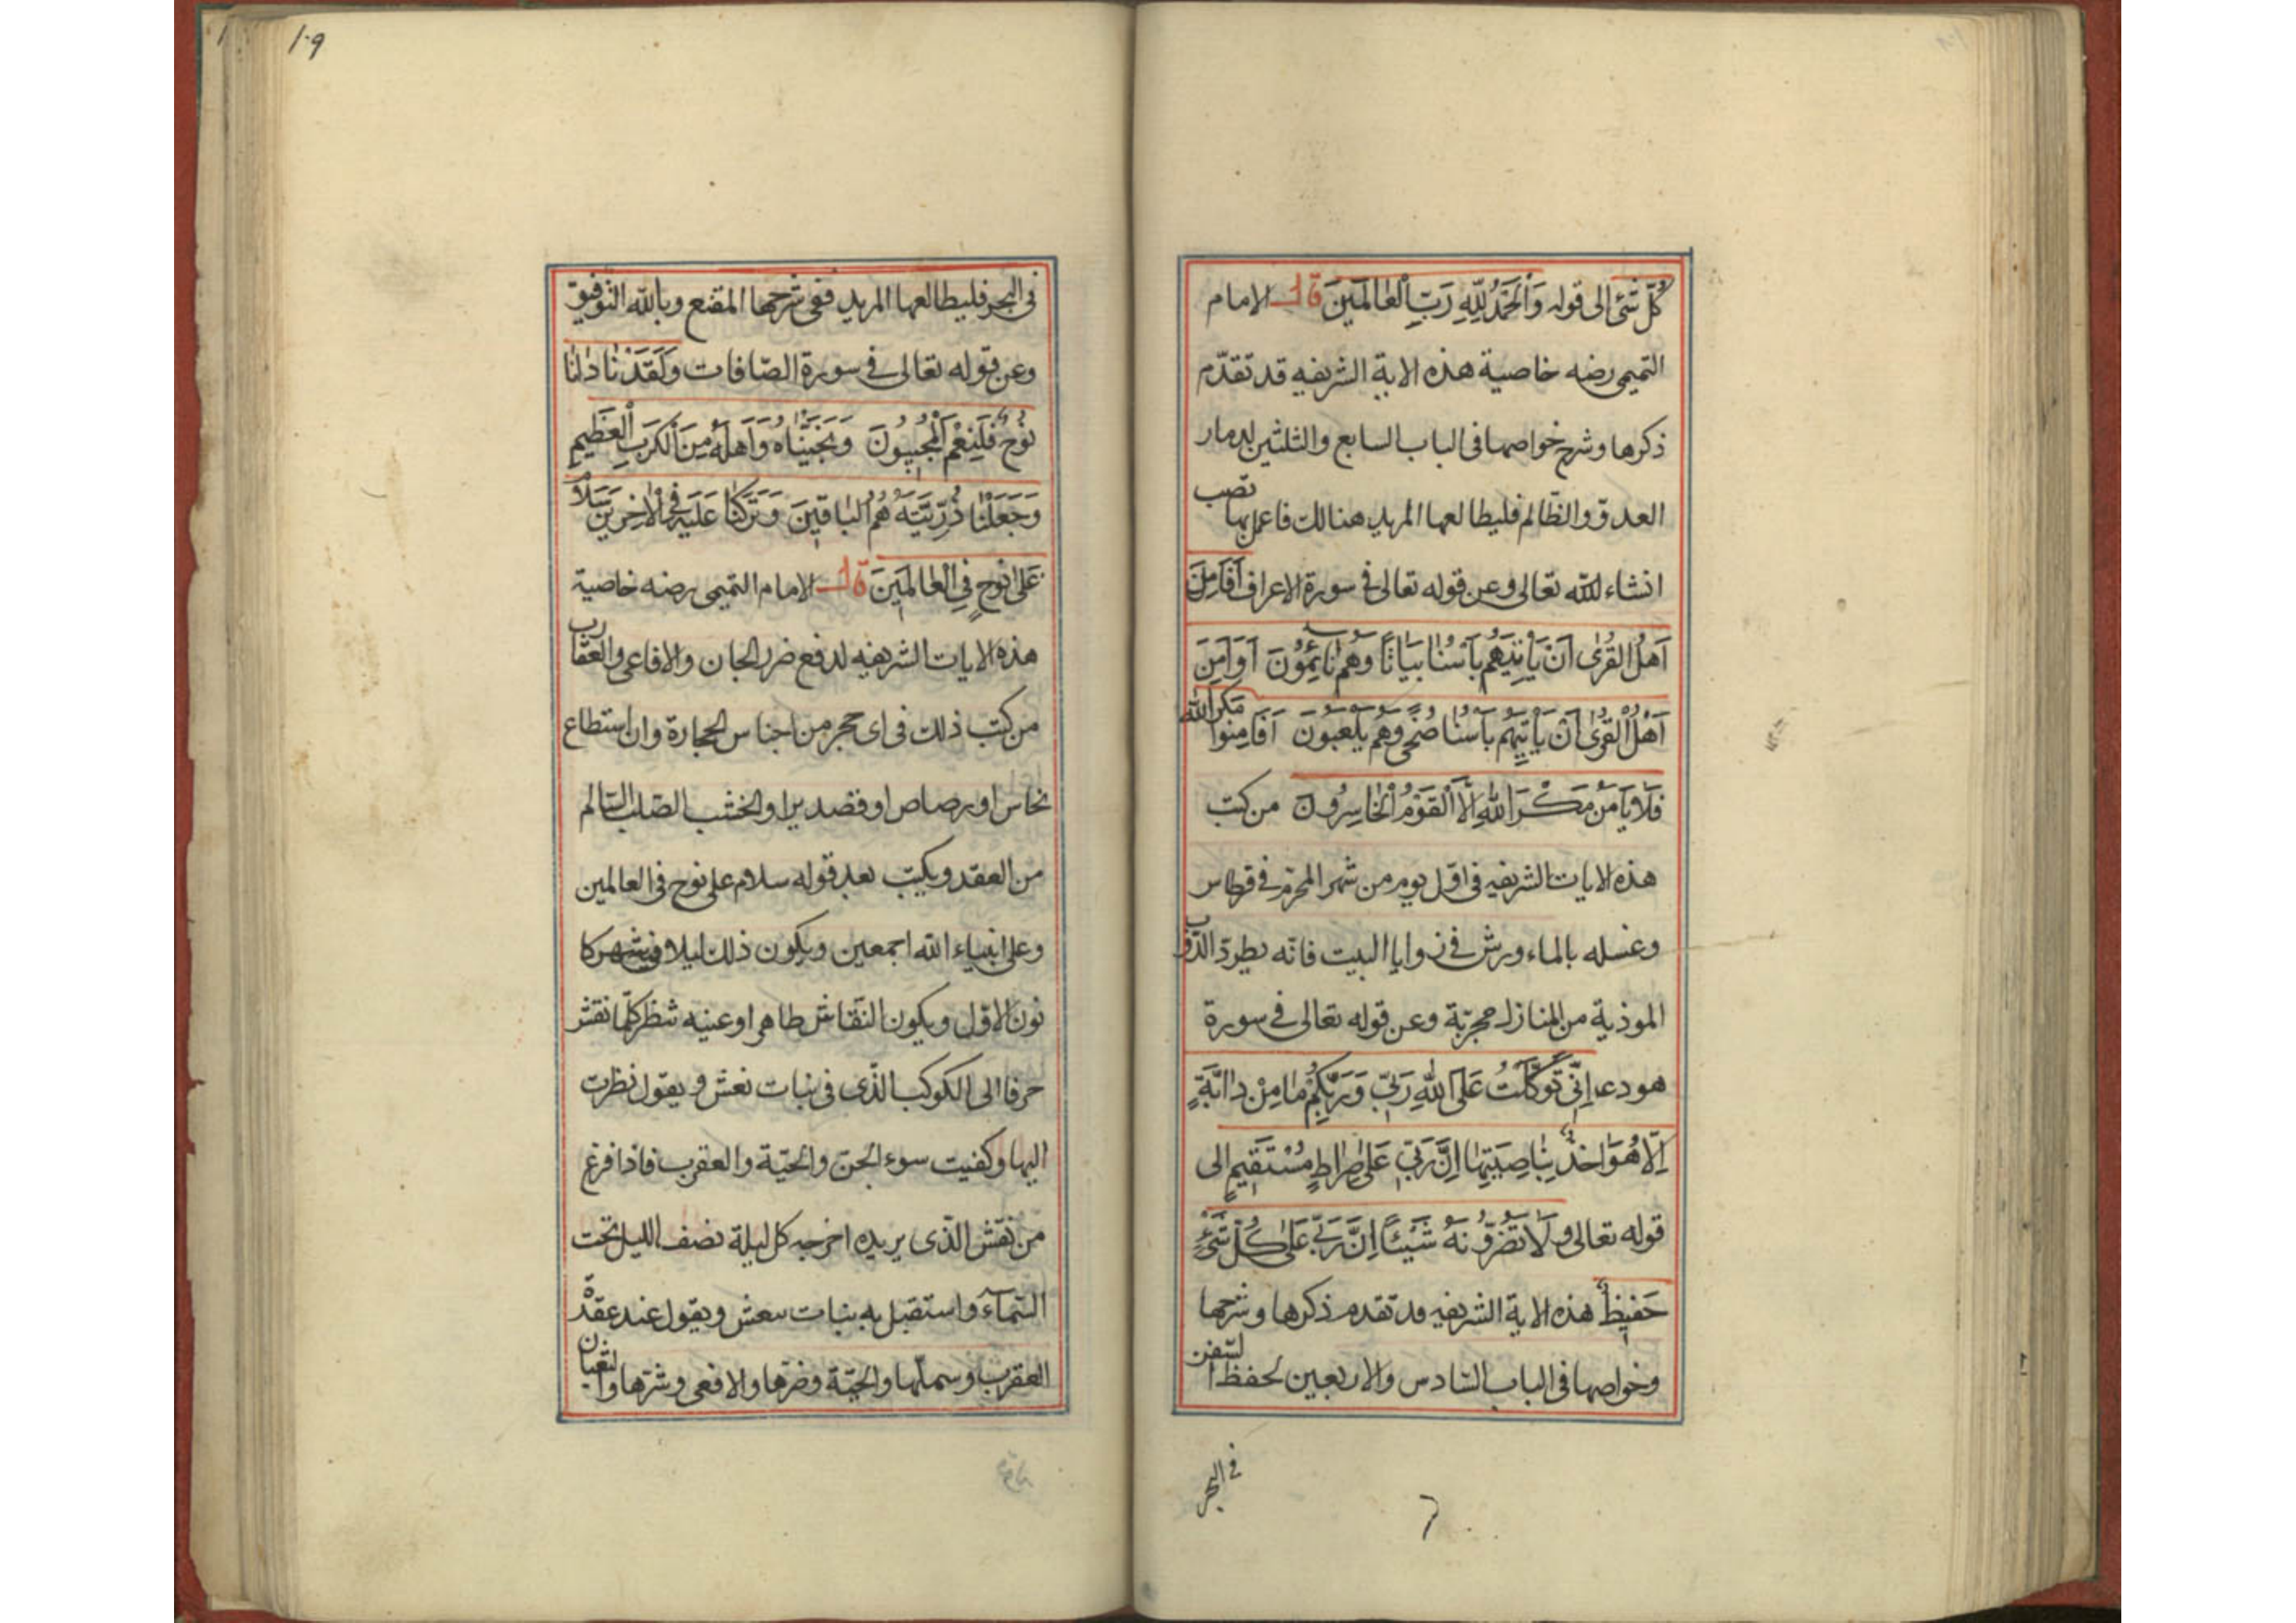 كُلِّ شَئٍ الى قوله وَالْحَمْدُ لِلّٰهِ رَبِّ الْعٰالَمٖينَ قال الامام
التميمى رضه خاصية هذه الاية الشريفه قد تقدّم
ذكرها وشرح خواصها فى الباب السابع والثلثين لدمار
العدوّ والظّالم فليطالعها المريد هنالك فاعمل بها تصب
انشاء للّٰه تعالى وعن قوله تعالى فى سورة الاعراف اَفَاَمِنَ
اَهْلُ الْقُرٰى اَنْ يَاْتِيَهُمْ بَاْسُنٰا بَيٰاتًا وَهُمْ نٰائِمُوْنَ اَوَاَمِنَ
اَهْلُ الْقُرٰى اَنْ يَاْتِيَهُمْ بَاْسُنٰا ضُحًى وَهُمْ يَلْعَبُوْنَ اَفَاَمِنُوا مَكْرَ اللّٰه
فَلَا يَاْمَنُ مَكْرَ اللّٰهِ اِلَّا الْقَوْمُ الْخٰاسِرُونَ من كتب
هذه الايات الشريفه فى اوّل يوم من شهر المحرّم فى قرطاس
وغسله بالماء ورش فى زوايا البيت فانّه يطرد الدّواب
الموذية من المنازل مجربّة وعن قوله تعالى فى سورة
هود ع اِنّٖى تَوَكَّلْتُ عَلَى اللّٰهِ رَبّٖى وَرَبِّكُمْ مٰا مِنْ دٰابَّةٍ
اِلّٰا هُوَ اٰخِذٌ بِنٰاصِيَتِهٰا اِنَّ رَبّٖى عَلٰى صِرٰاطٍ مُسْتَقٖيمٍ الى
قوله تعالى وَلَا تَضُرُّوْنَهُ شَيْئًا اِنَّ رَبّٖى عَلٰى كُلِّ شَئٍ
حَفٖيظٌ هذه الاية الشريفه قد تقدم ذكرها وشرحها
وخواصها فى الباب السّادس والاربعين لحفظ السّفن
فى البحر
١٠٩
فى البحر فليطالعها المريد ففى شرحها المقنع وباللّٰه التّوفيق
وعن قوله تعالى فى سورة الصّافات وَلَقَدْ نٰادٰانٰا
نُوْحٌ فَلَنِعْمَ الْمُجٖيبُوْنَ وَنَجَّيْنٰاهُ وَاَهْلَهُ مِنَ الْكَرْبِ الْعَظٖيمِ
وَجَعَلْنٰا ذُرِّيَّتَهُ هُمُ الْبٰاقٖينَ وَتَرَكْنٰا عَلَيْهِ فِى الْاٰخِرٖينَ سَلَامٌ
عَلٰى نُوْحٍ فِى الْعٰالَمٖينَ قال الامام التميمى رضه خاصية
هذه الايات الشريفه لدفع ضرر الجان والافاعى والعقارب
من كتب ذلك فى اى حجر من اجناس الحجارة وان استطاع
نحاس او رصاص او قصدير او الخشب الصّلب السّالم
من العقد ويكتب بعد قوله سلام على نوح فى العالمين
وعلى انبياء اللّٰه اجمعين ويكون ذلك ليلا فى شهر كا
نون الاوّل ويكون النّقاش طاهرا وعينه تنظر كلّما نقش
حرفا الى الكوكب الذّى فى بنات نعش ويقول نظرت
اليها وكفيت سوء الجنّ والحيّة والعقرب فاذا فرغ
من نقش الذّى يريده اخرجه كل ليلة نصف الليل تحت
السّمآء واستقبل به بنات نعش ويقول عند عقدة
العقرب وسمّها والحيّة وضرّها والافعى وشرّها والثعبان